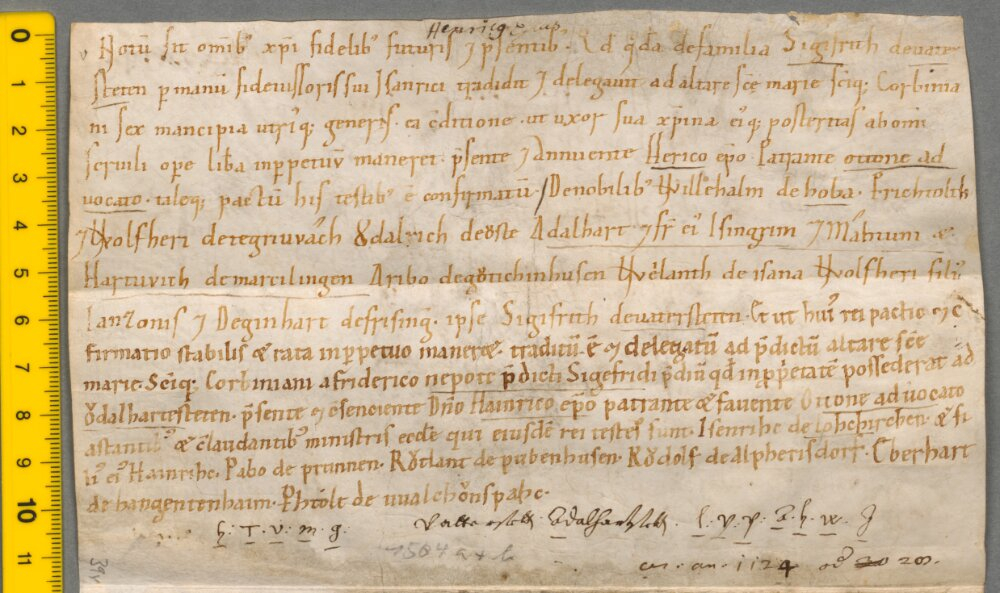 Henricus eps
Notū sit omīb' xpi fidelib' futuris ⁊ p̄sentib'. Qd q̄da de familia Sigifrith de uuate
steten p manū fideiussoris sui Hainrici tradidit ⁊ delegauit ad altare scē marie sciq; Corbinia
ni sex mancipia utriq; generis. ea c̄ditione. ut uxor sua xp̄ina eiq; posteritas ab omi
seruili ope libа inppetuū maneret. p̄sente ⁊ Annuente Herico ep̄o. Patrante ottone ad
uocato. taleq; pactū his testib' ē confirmatū. De nobilib' Willehalm de hoba. Frichtolth
⁊ Wolfheri de tegriuuach Ůdalrich de oste Adalhart ⁊ fr̄ ei' Isingrim ⁊ Mahtuni &
Hartuuich de marcilingen Aribo de götichinhusen Wielanth de isana Wolfheri filiꝰ
Lanzonis ⁊ Deginhart de frising. ipse Sigifrith de uuatersteten. Et ut hui' rei pactio ⁊ c̄
firmatio stabilis & rata inppetuo maneret. traditū ē ⁊ delegatū ad p̄dictū altare scē
marie. Sciq; Corbiniani a friderico nepote p̄dicti Sigefridi p̄diū qd inppetatē possederat ad
Ůdalhartesteten. p̄sente ⁊ c̄senciente Dn̄o Hainrico ep̄o patrante & fauente Ottone aduocato
astantib' & c̄laudantib' ministris eccłe qui eiusdē rei testes sunt. Isenrihc de Lohchirchen. & fi
li' ei' Hainrihc. Pabo de prunnen. Růtlant de pubenhusen. Růdolf de alpherisdorf. Eberhart
de hangentenhaim. Phtolt de uualchǒnspahc.
h. T. v. m. g. Vatterstett. Adalhartstett. l. p. p. A. h. w. J
1504 a + b
cir. an. 1124 od 20 203.
39v